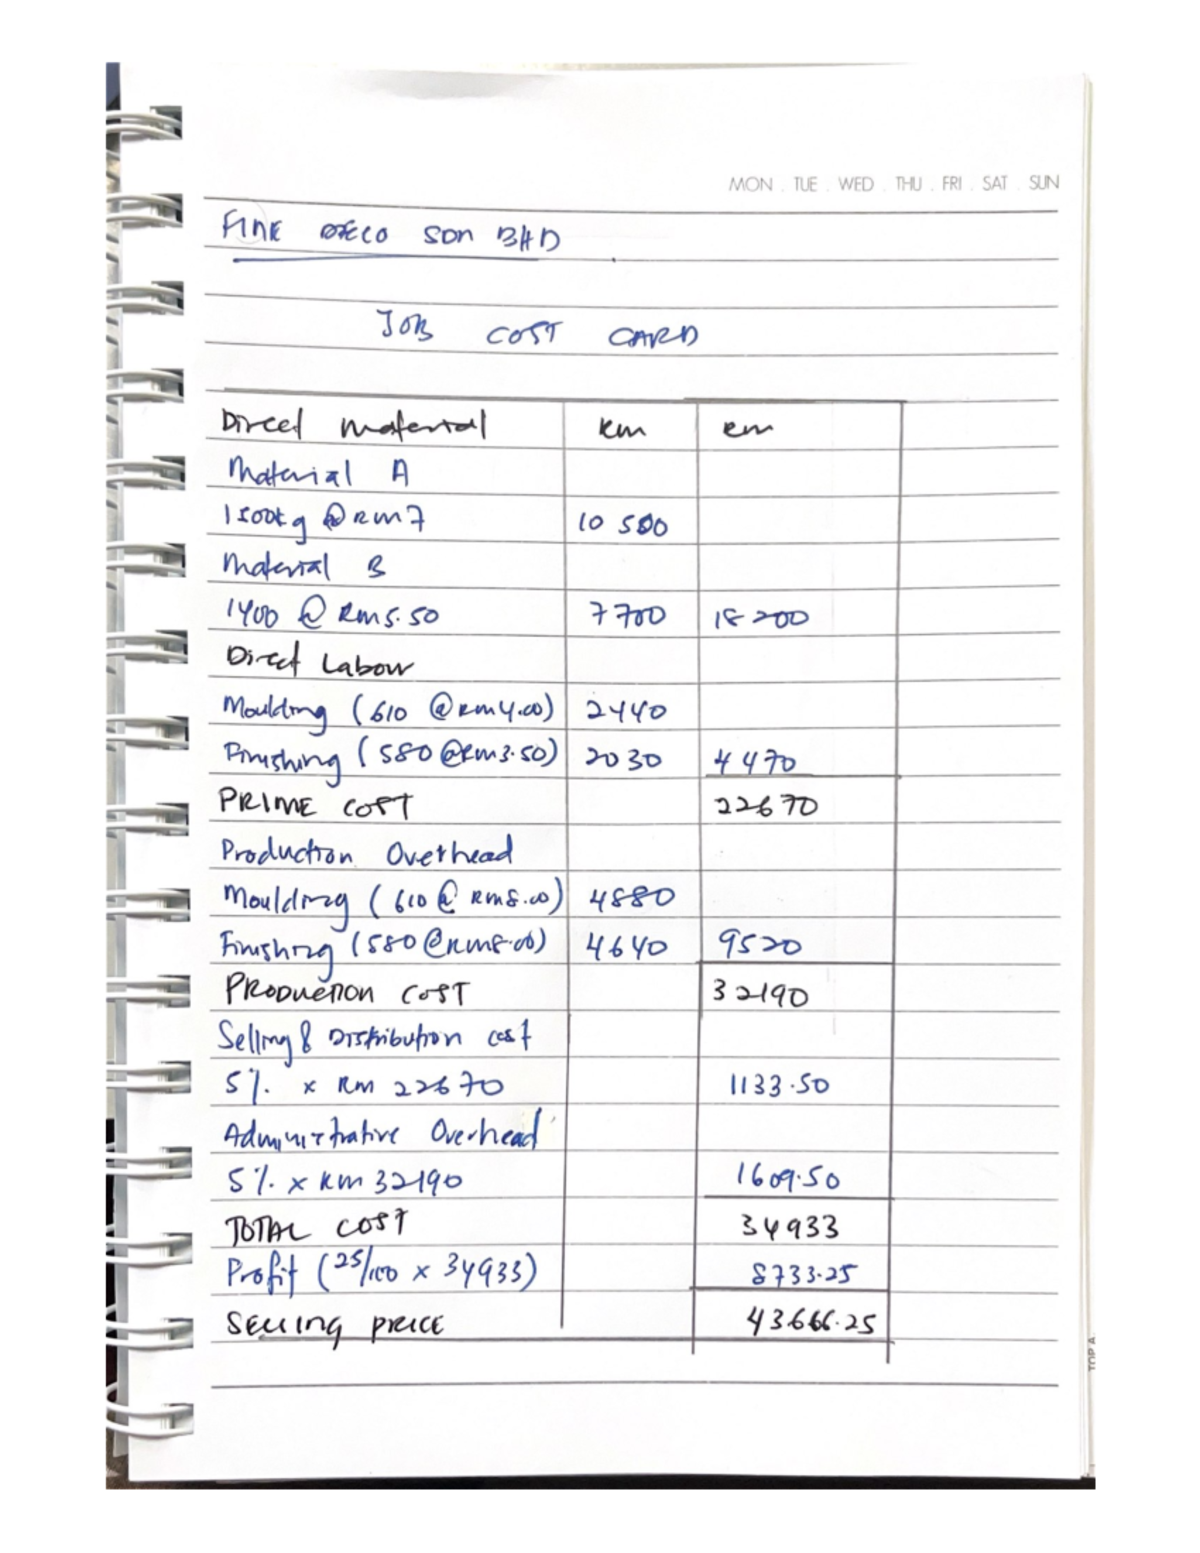 MON . TUE . WED . THU . FRI . SAT . SUN
FINE DECO SDN BHD
JOB COST CARD
Direct Material RM RM
Material A
1500kg @ RM7 10 500
Material B
1400 @ RM5.50 7700 18200
Direct Labour
Moulding (610 @ RM4.00) 2440
Finishing (580 @ RM3.50) 2030 4470
PRIME COST 22670
Production Overhead
Moulding (610 @ RM8.00) 4880
Finishing (580 @ RM8.00) 4640 9520
PRODUCTION COST 32190
Selling & Distribution cost
5% x RM 22670 1133.50
Administrative Overhead
5% x RM 32190 1609.50
TOTAL COST 34933
Profit (25/100 x 34933) 8733.25
SELLING PRICE 43666.25
TOP A